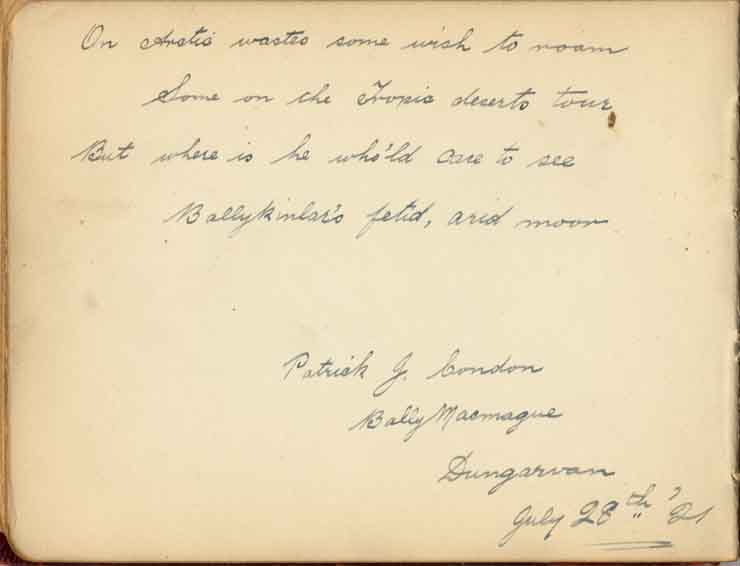 On Arctic wastes some wish to roam
Some on the Tropic deserts tour
But where is he who'ld care to see
Ballykinlar's fetid, arid moor
Patrick J. Condon
BallyMacmague
Dungarvan
July 28th '21